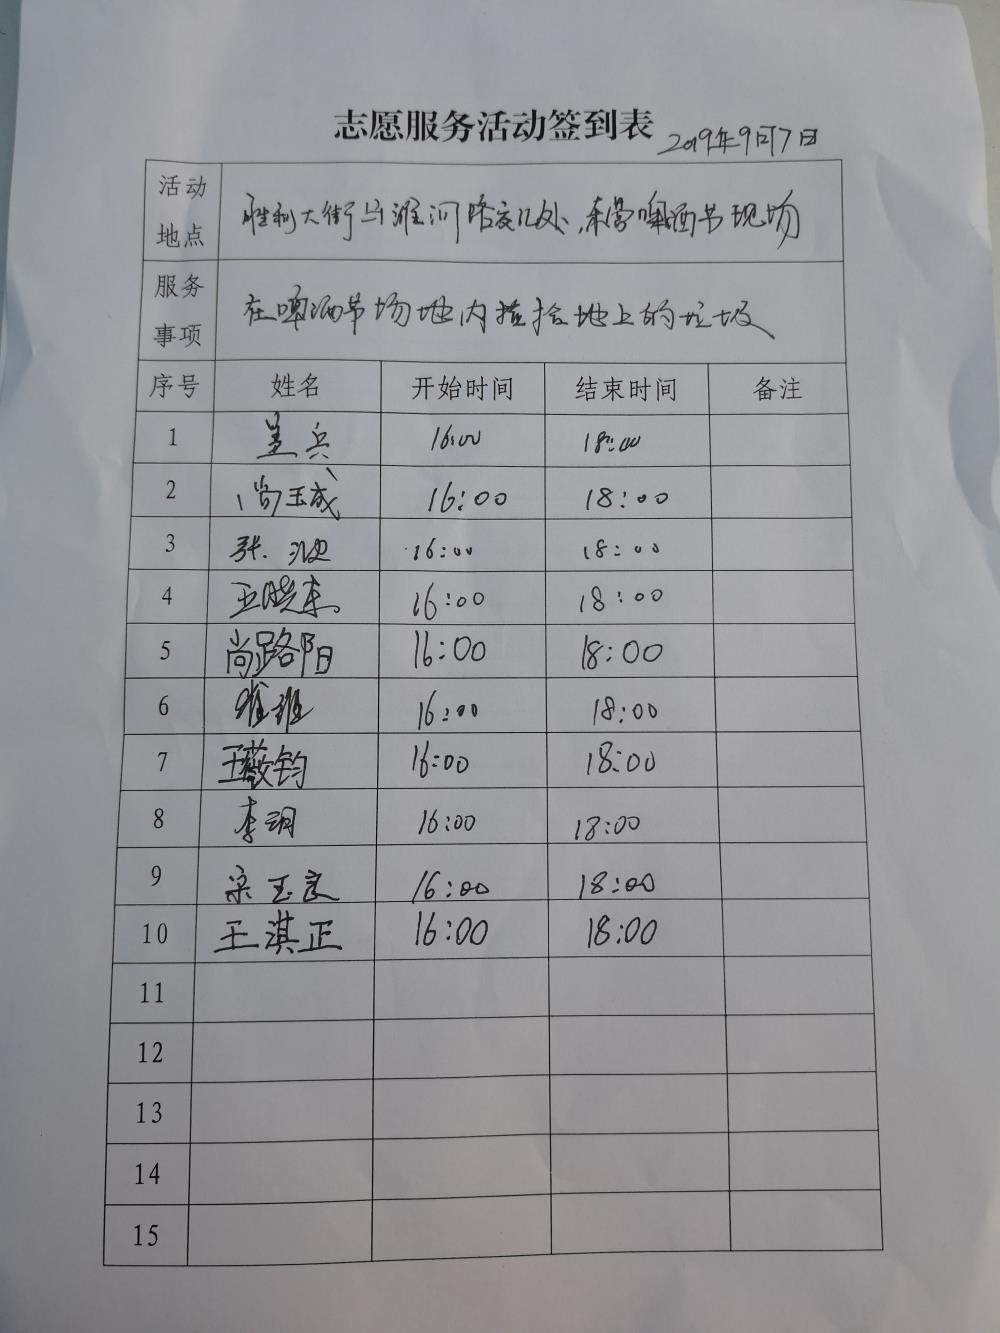 志愿服务活动签到表 2019年9月7日
活动地点 胜利大街与潍河路交汇处,东营啤酒节现场
服务事项 在啤酒节场地内捡拾地上的垃圾
序号 姓名 开始时间 结束时间 备注
1 兵 16:00 18:00
2 尚玉成 16:00 18:00
3 张 16:00 18:00
4 王晓东 16:00 18:00
5 尚路阳 16:00 18:00
6 16:00 18:00
7 王薇钧 16:00 18:00
8 李玥 16:00 18:00
9 梁玉良 16:00 18:00
10 王淇正 16:00 18:00
11
12
13
14
15